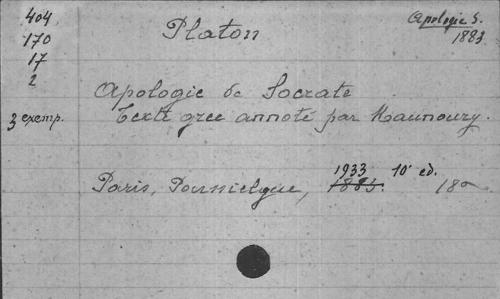 404
170
17
2
3 exemp.
Platon
Apologie S.
1883
Apologie de Socrate
Texte grec annoté par Maunoury.
Paris, Poussielgue, 1883. 1933 10e ed. 18o